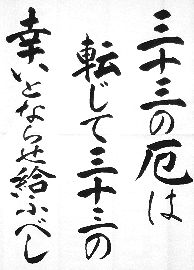 三十三の厄は
転じて三十三の
幸いとならせ給ふべし